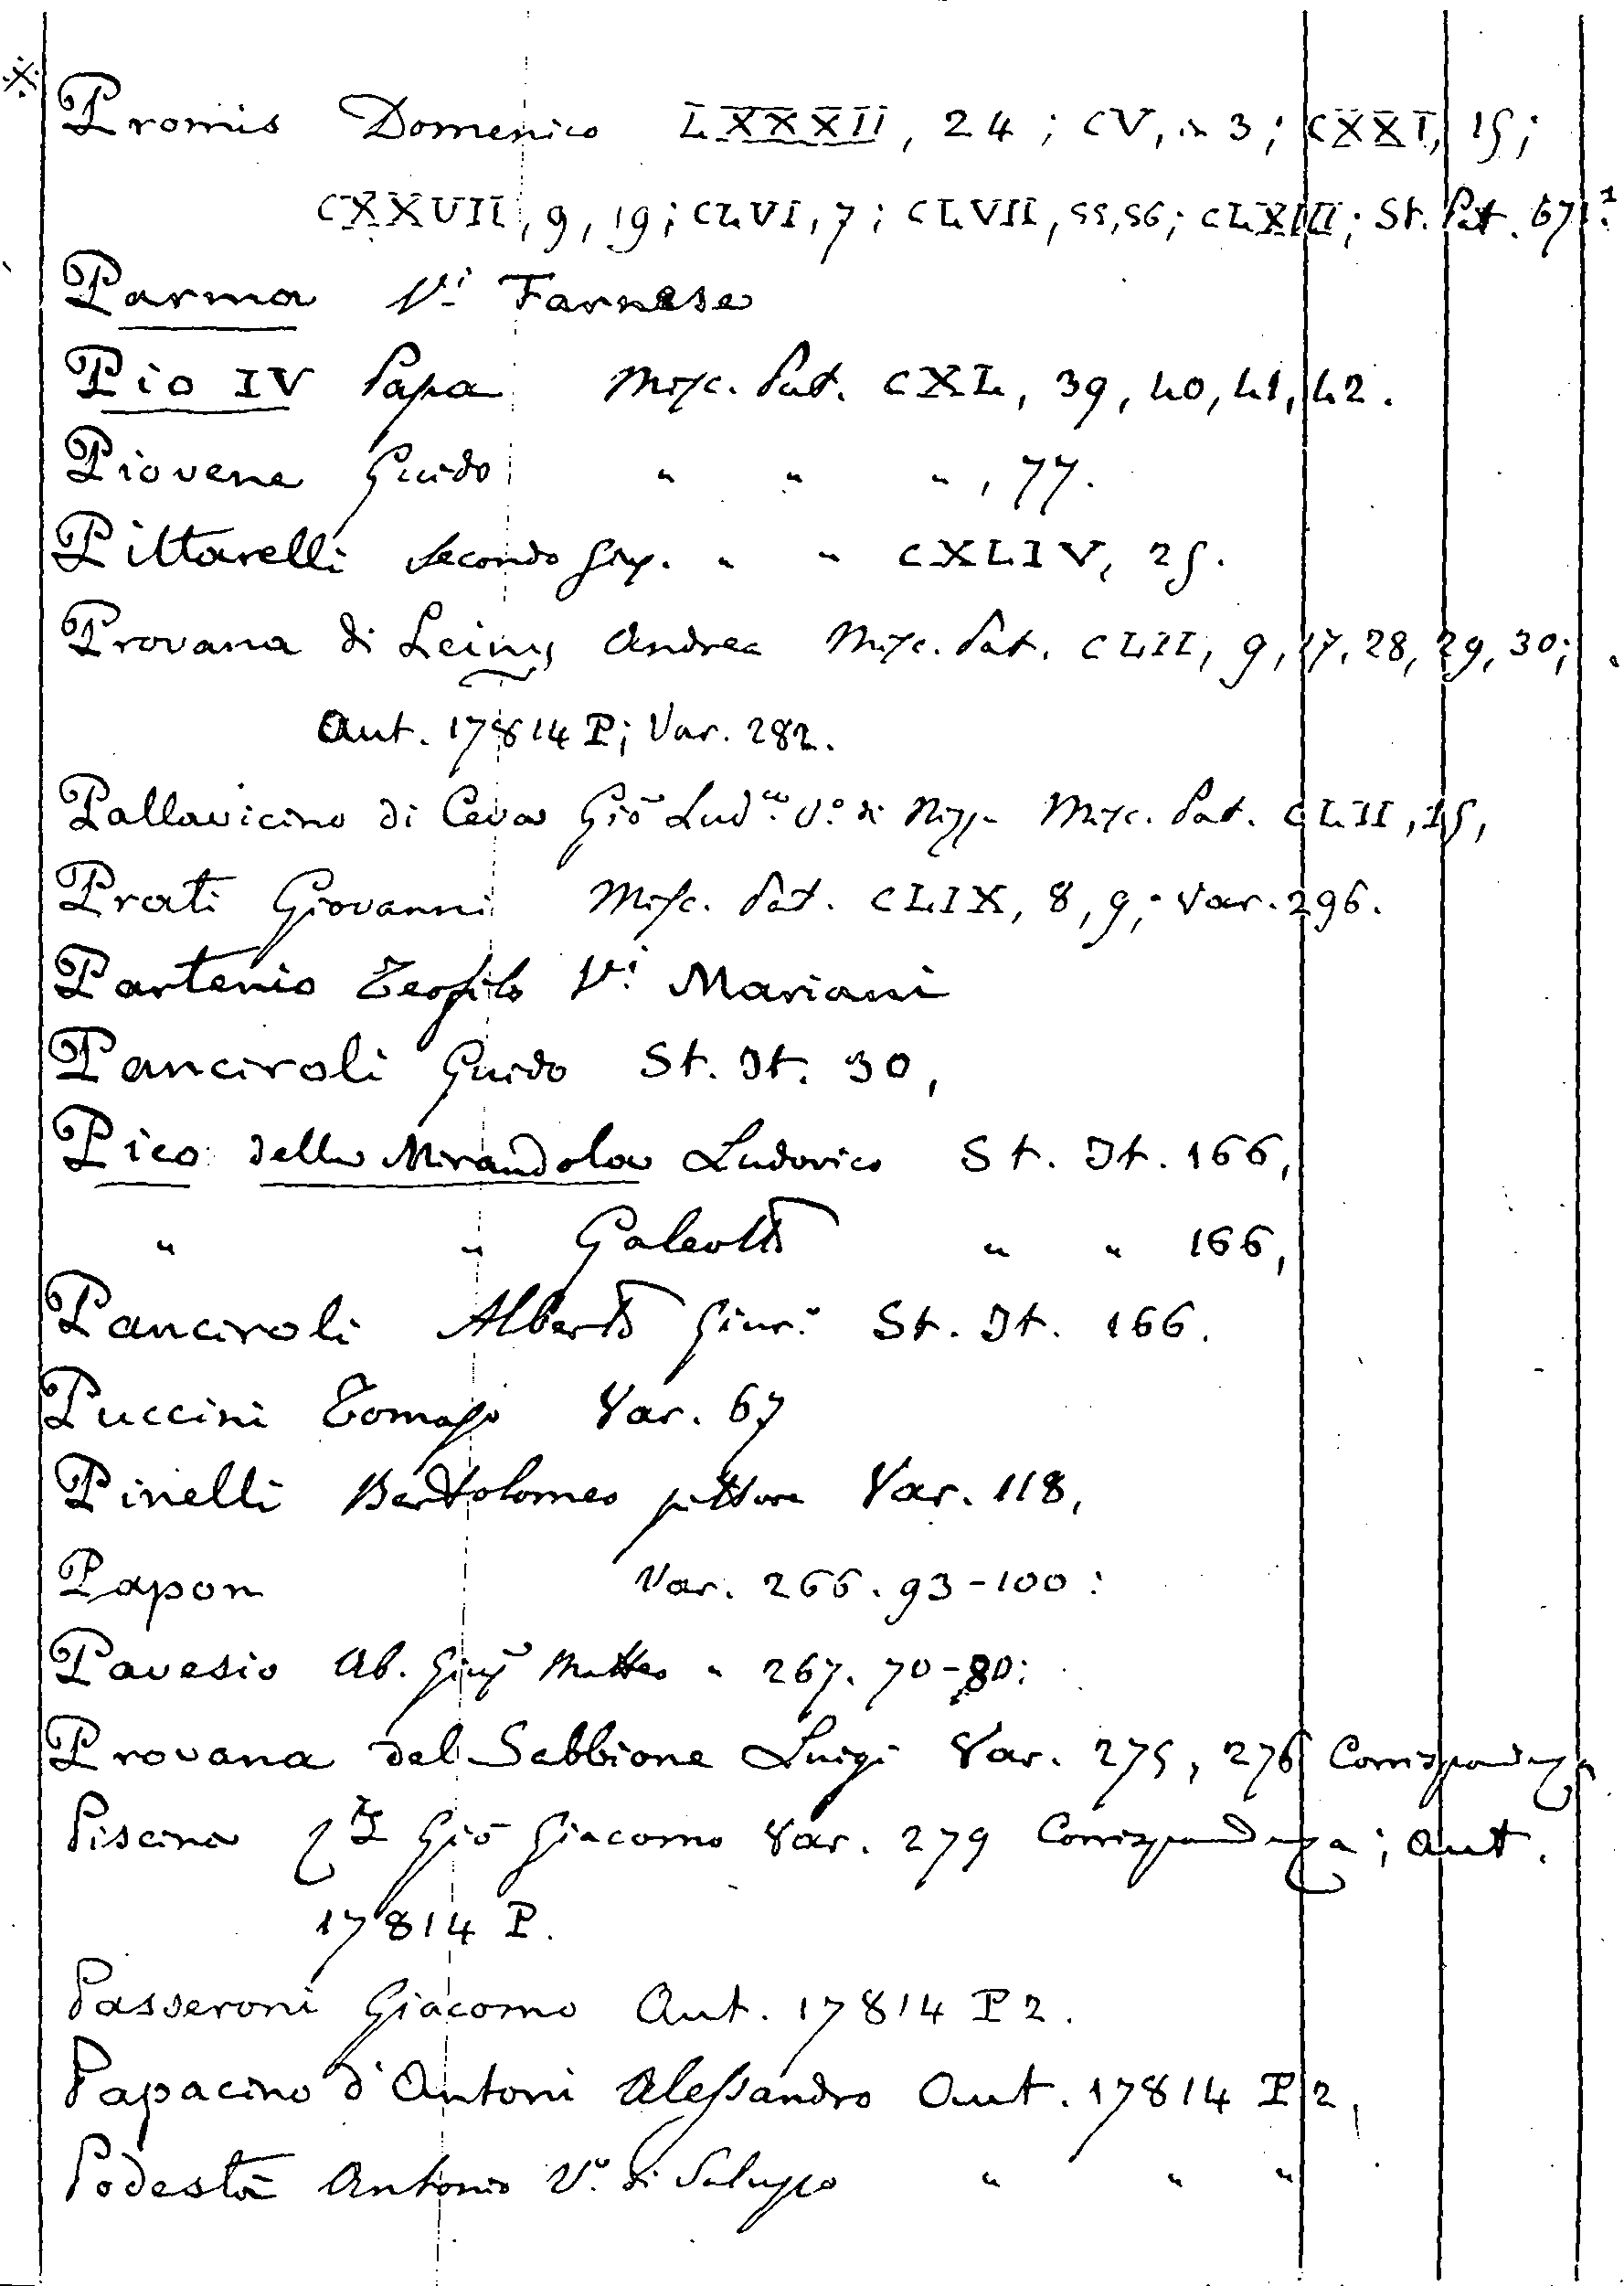 Promis Domenico LXXXII, 24; CV, n 3; CXXI, 15;
CXXVII, 9, 19; CLVI, 7; CLVII, 55, 56; CLXIII; St. Pat. 671.
Parma Vi Farnese
Pio IV Papa Misc. Pat. CXL, 39, 40, 41, 42.
Piovene Guido " " ", 77.
Pittarelli Secondo Gius. " " CXLIV, 25.
Provana di Leinÿ Andrea Misc. Pat. CLII, 9, 17, 28, 29, 30;
Aut. 17814 P; Var. 282.
Pallavicino di Ceva Giō Lud.co V.o di Nizza Misc. Pat. CLII, 15,
Prati Giovanni Misc. Pat. CLIX, 8, 9; Var. 296.
Partenio Teofilo Vi Mariani
Panciroli Guido St. It. 30,
Pico della Mirandola Ludovico St. It. 166,
" " Galeotto " " 166,
Panciroli Alberto Giur.o St. It. 166.
Puccini Tomaso Var. 67
Pinelli Bartolomeo pittore Var. 118,
Papon Var. 266. 93-100:
Pavesio Ab. Gius Matteo " 267. 70-80:
Provana del Sabbione Luigi Var. 275, 276 Corrispondenza
Piscina Giō Giacomo Var. 279 Corrispondenza; Aut.
17814 P.
Passeroni Giacomo Aut. 17814 P 2.
Papacino d'Antoni Alessandro Aut. 17814 P 2,
Podestà Antonio V.o di Saluzzo " " "